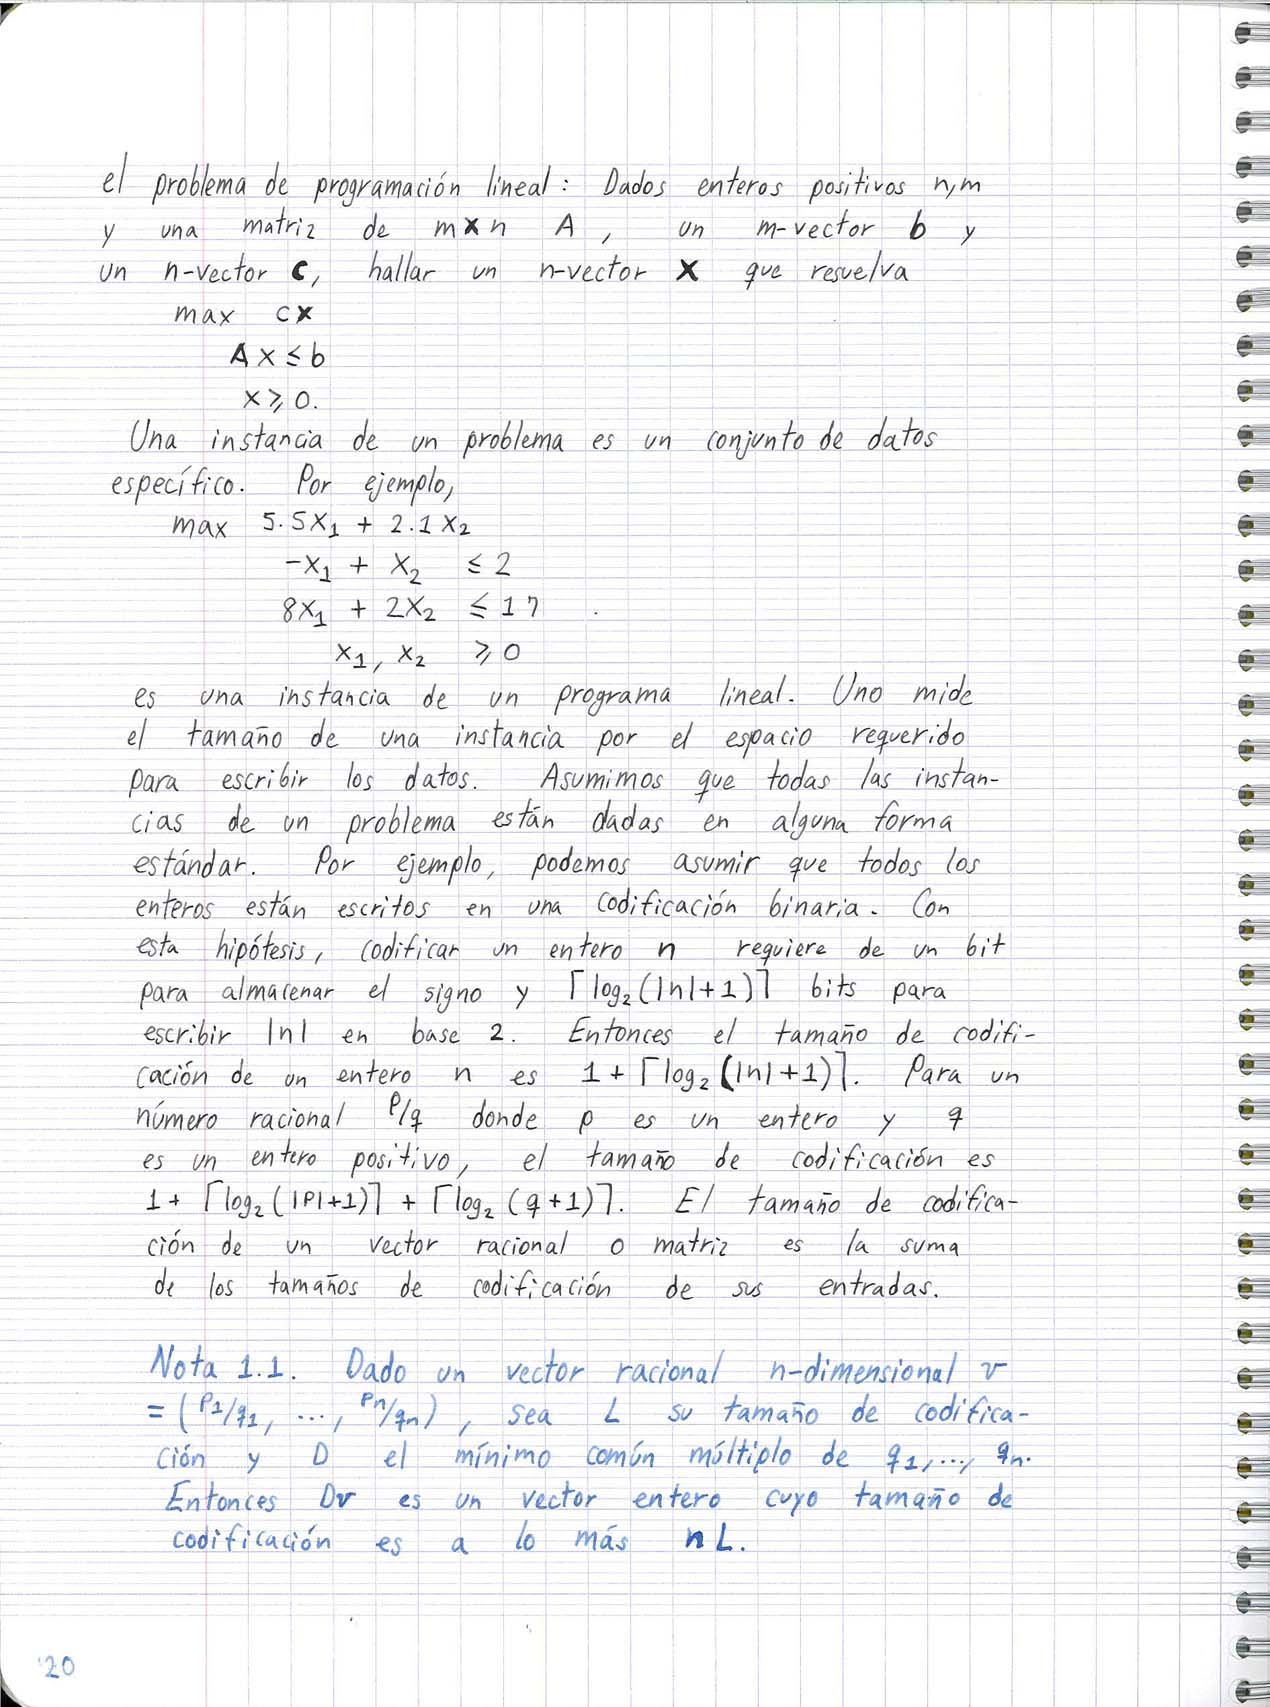 el problema de programación lineal: Dados enteros positivos n,m
y una matriz de m×n A, un m-vector b y
un n-vector c, hallar un n-vector x que resuelva
max cx
Ax ≤ b
x ≥ 0.
Una instancia de un problema es un conjunto de datos
específico. Por ejemplo,
max 5.5x₁ + 2.1x₂
-x₁ + x₂ ≤ 2
8x₁ + 2x₂ ≤ 17
x₁, x₂ ≥ 0
es una instancia de un programa lineal. Uno mide
el tamaño de una instancia por el espacio requerido
para escribir los datos. Asumimos que todas las instan-
cias de un problema están dadas en alguna forma
estándar. Por ejemplo, podemos asumir que todos los
enteros están escritos en una codificación binaria. Con
esta hipótesis, codificar un entero n requiere de un bit
para almacenar el signo y ⌈log₂(|n|+1)⌉ bits para
escribir |n| en base 2. Entonces el tamaño de codifi-
cación de un entero n es 1+⌈log₂(|n|+1)⌉. Para un
número racional p/q donde p es un entero y q
es un entero positivo, el tamaño de codificación es
1+⌈log₂(|p|+1)⌉ + ⌈log₂(q+1)⌉. El tamaño de codifica-
ción de un vector racional o matriz es la suma
de los tamaños de codificación de sus entradas.
Nota 1.1. Dado un vector racional n-dimensional v
= (p₁/q₁, ..., pₙ/qₙ), sea L su tamaño de codifica-
ción y D el mínimo común múltiplo de q₁,..., qₙ.
Entonces Dv es un vector entero cuyo tamaño de
codificación es a lo más nL.
20